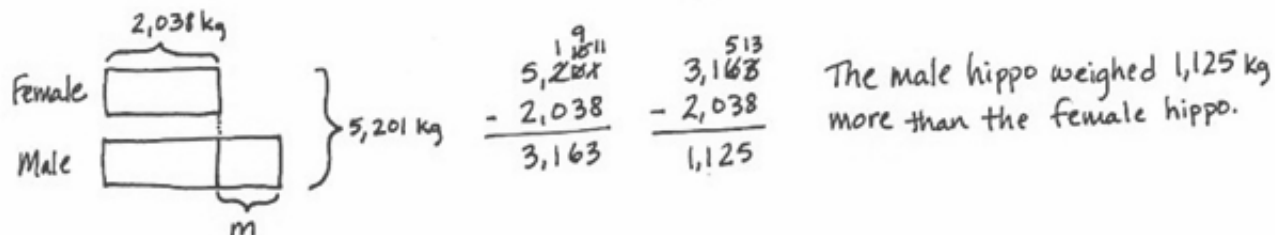 2,038 kg
Female
Male
5,201 kg
m
1 9
10 11
5,201
- 2,038
3,163
5 13
3,163
- 2,038
1,125
The male hippo weighed 1,125 kg
more than the female hippo.